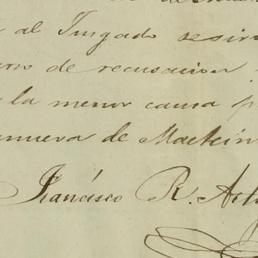 al Juzgado se sir
de recusacion
la menor causa p
de Machin
Francisco R. Art